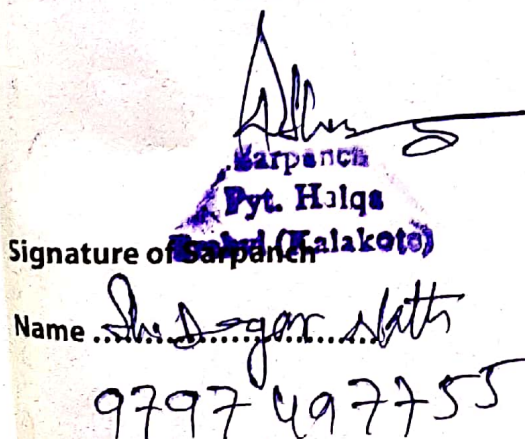 Sarpanch
Pyt. Halqa
(Kalakote)
Signature of Sarpanch
Name .......... Sh. Dogar Nath
9797497755